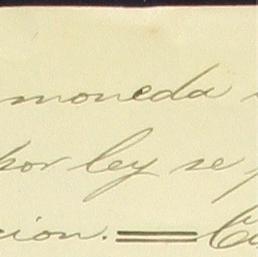 moneda
por ley se
cion. =